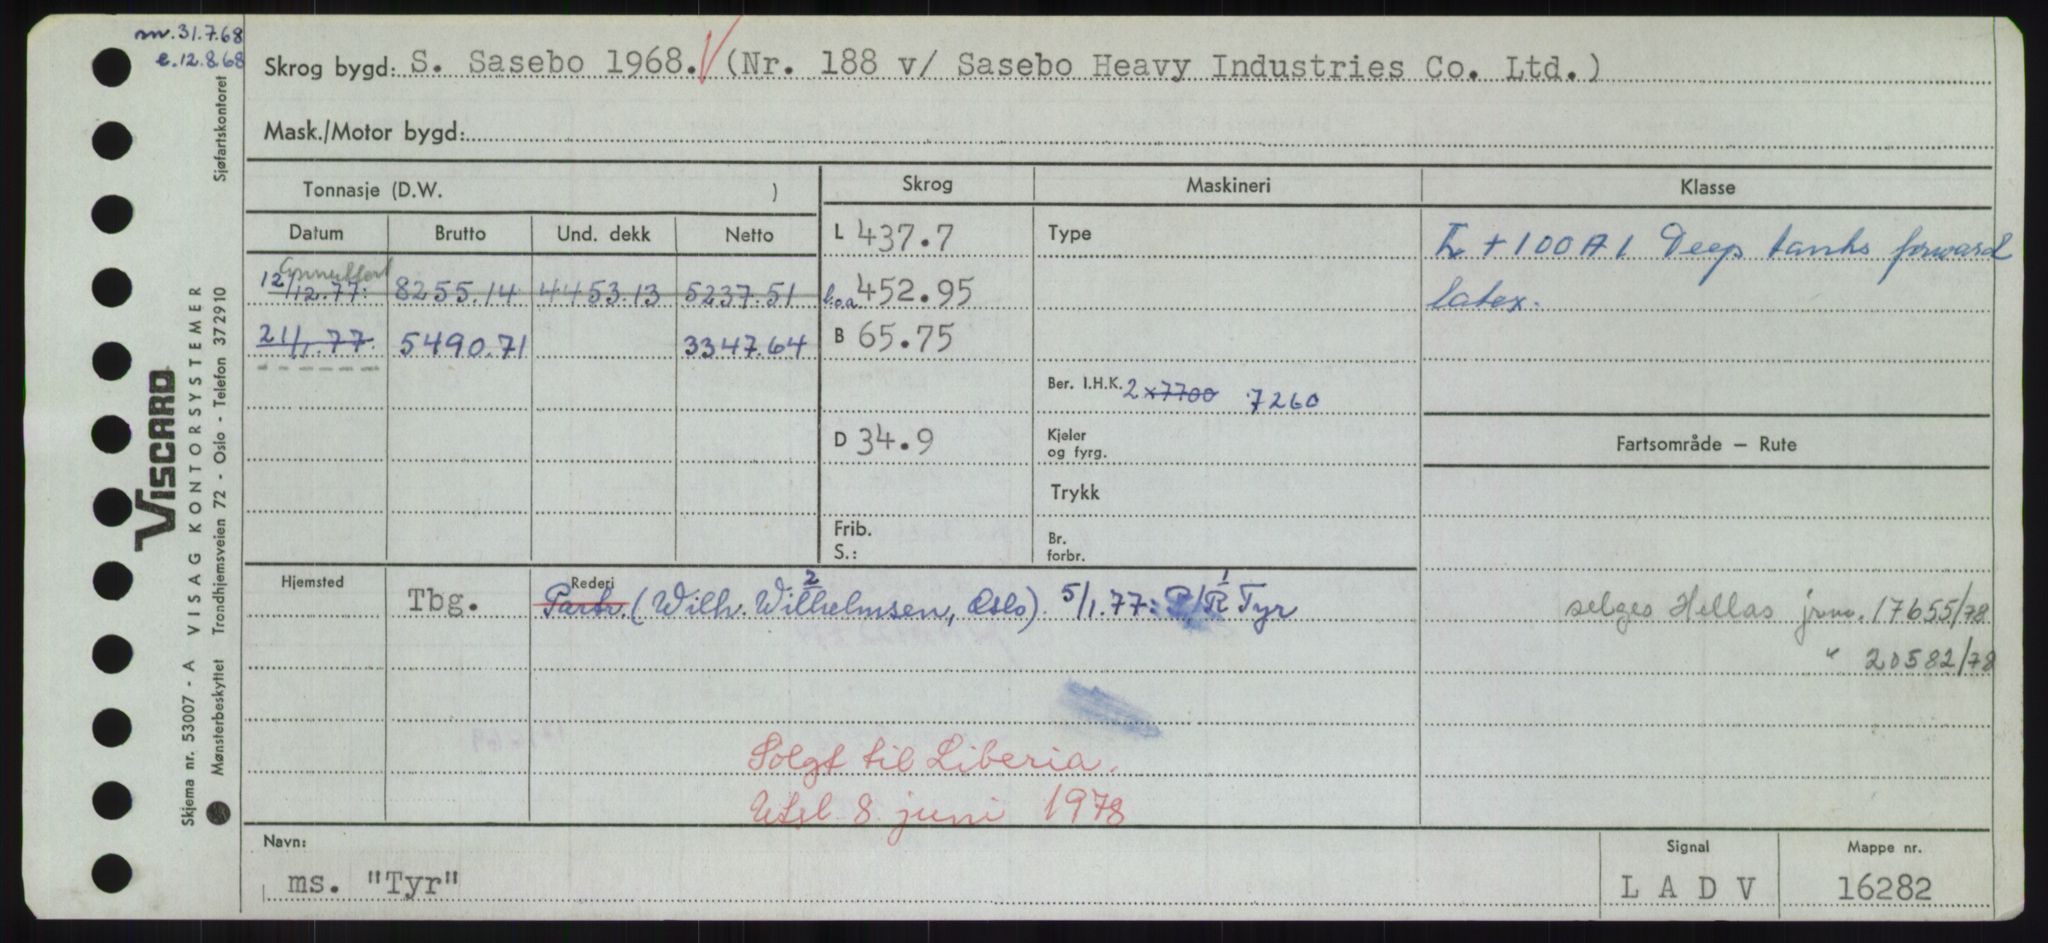 m. 31.7.68
e. 12.8.68
Skrog bygd: S. Sasebo 1968. (Nr. 188 v/ Sasebo Heavy Industries Co. Ltd.)
Mask./Motor bygd:
Tonnasje (D.W. )
Skrog Maskineri Klasse
Datum Brutto Und. dekk Netto
L 437.7 Type
+ 100 A 1 Deep tanks forward
latex.
Annullert
12/12.77. 8255.14 4453.13 5237.51
l.o.a 452.95
21/1.77. 5490.71 3347.64
B 65.75
Ber. I.H.K. 2 x7700 7260
D 34.9 Kjeler
og fyrg.
Fartsområde – Rute
Trykk
Frib.
S.:
Br.
forbr.
Hjemsted Tbg. Rederi
2 1
Partr. (Wilh. Wilhelmsen, Oslo). 5/1.77: P/R Tyr
selges Hellas jrnr. 17655/78
" 20582/78
Solgt til Liberia.
Utsl. 8. juni 1978
Navn:
ms. "Tyr"
Signal
L A D V
Mappe nr.
16282
VISCARD
VISAG KONTORSYSTEMER
Skjema nr. 53007 - A
Mønsterbeskyttet Trondhjemsveien 72 - Oslo - Telefon 372910
Sjøfartskontoret